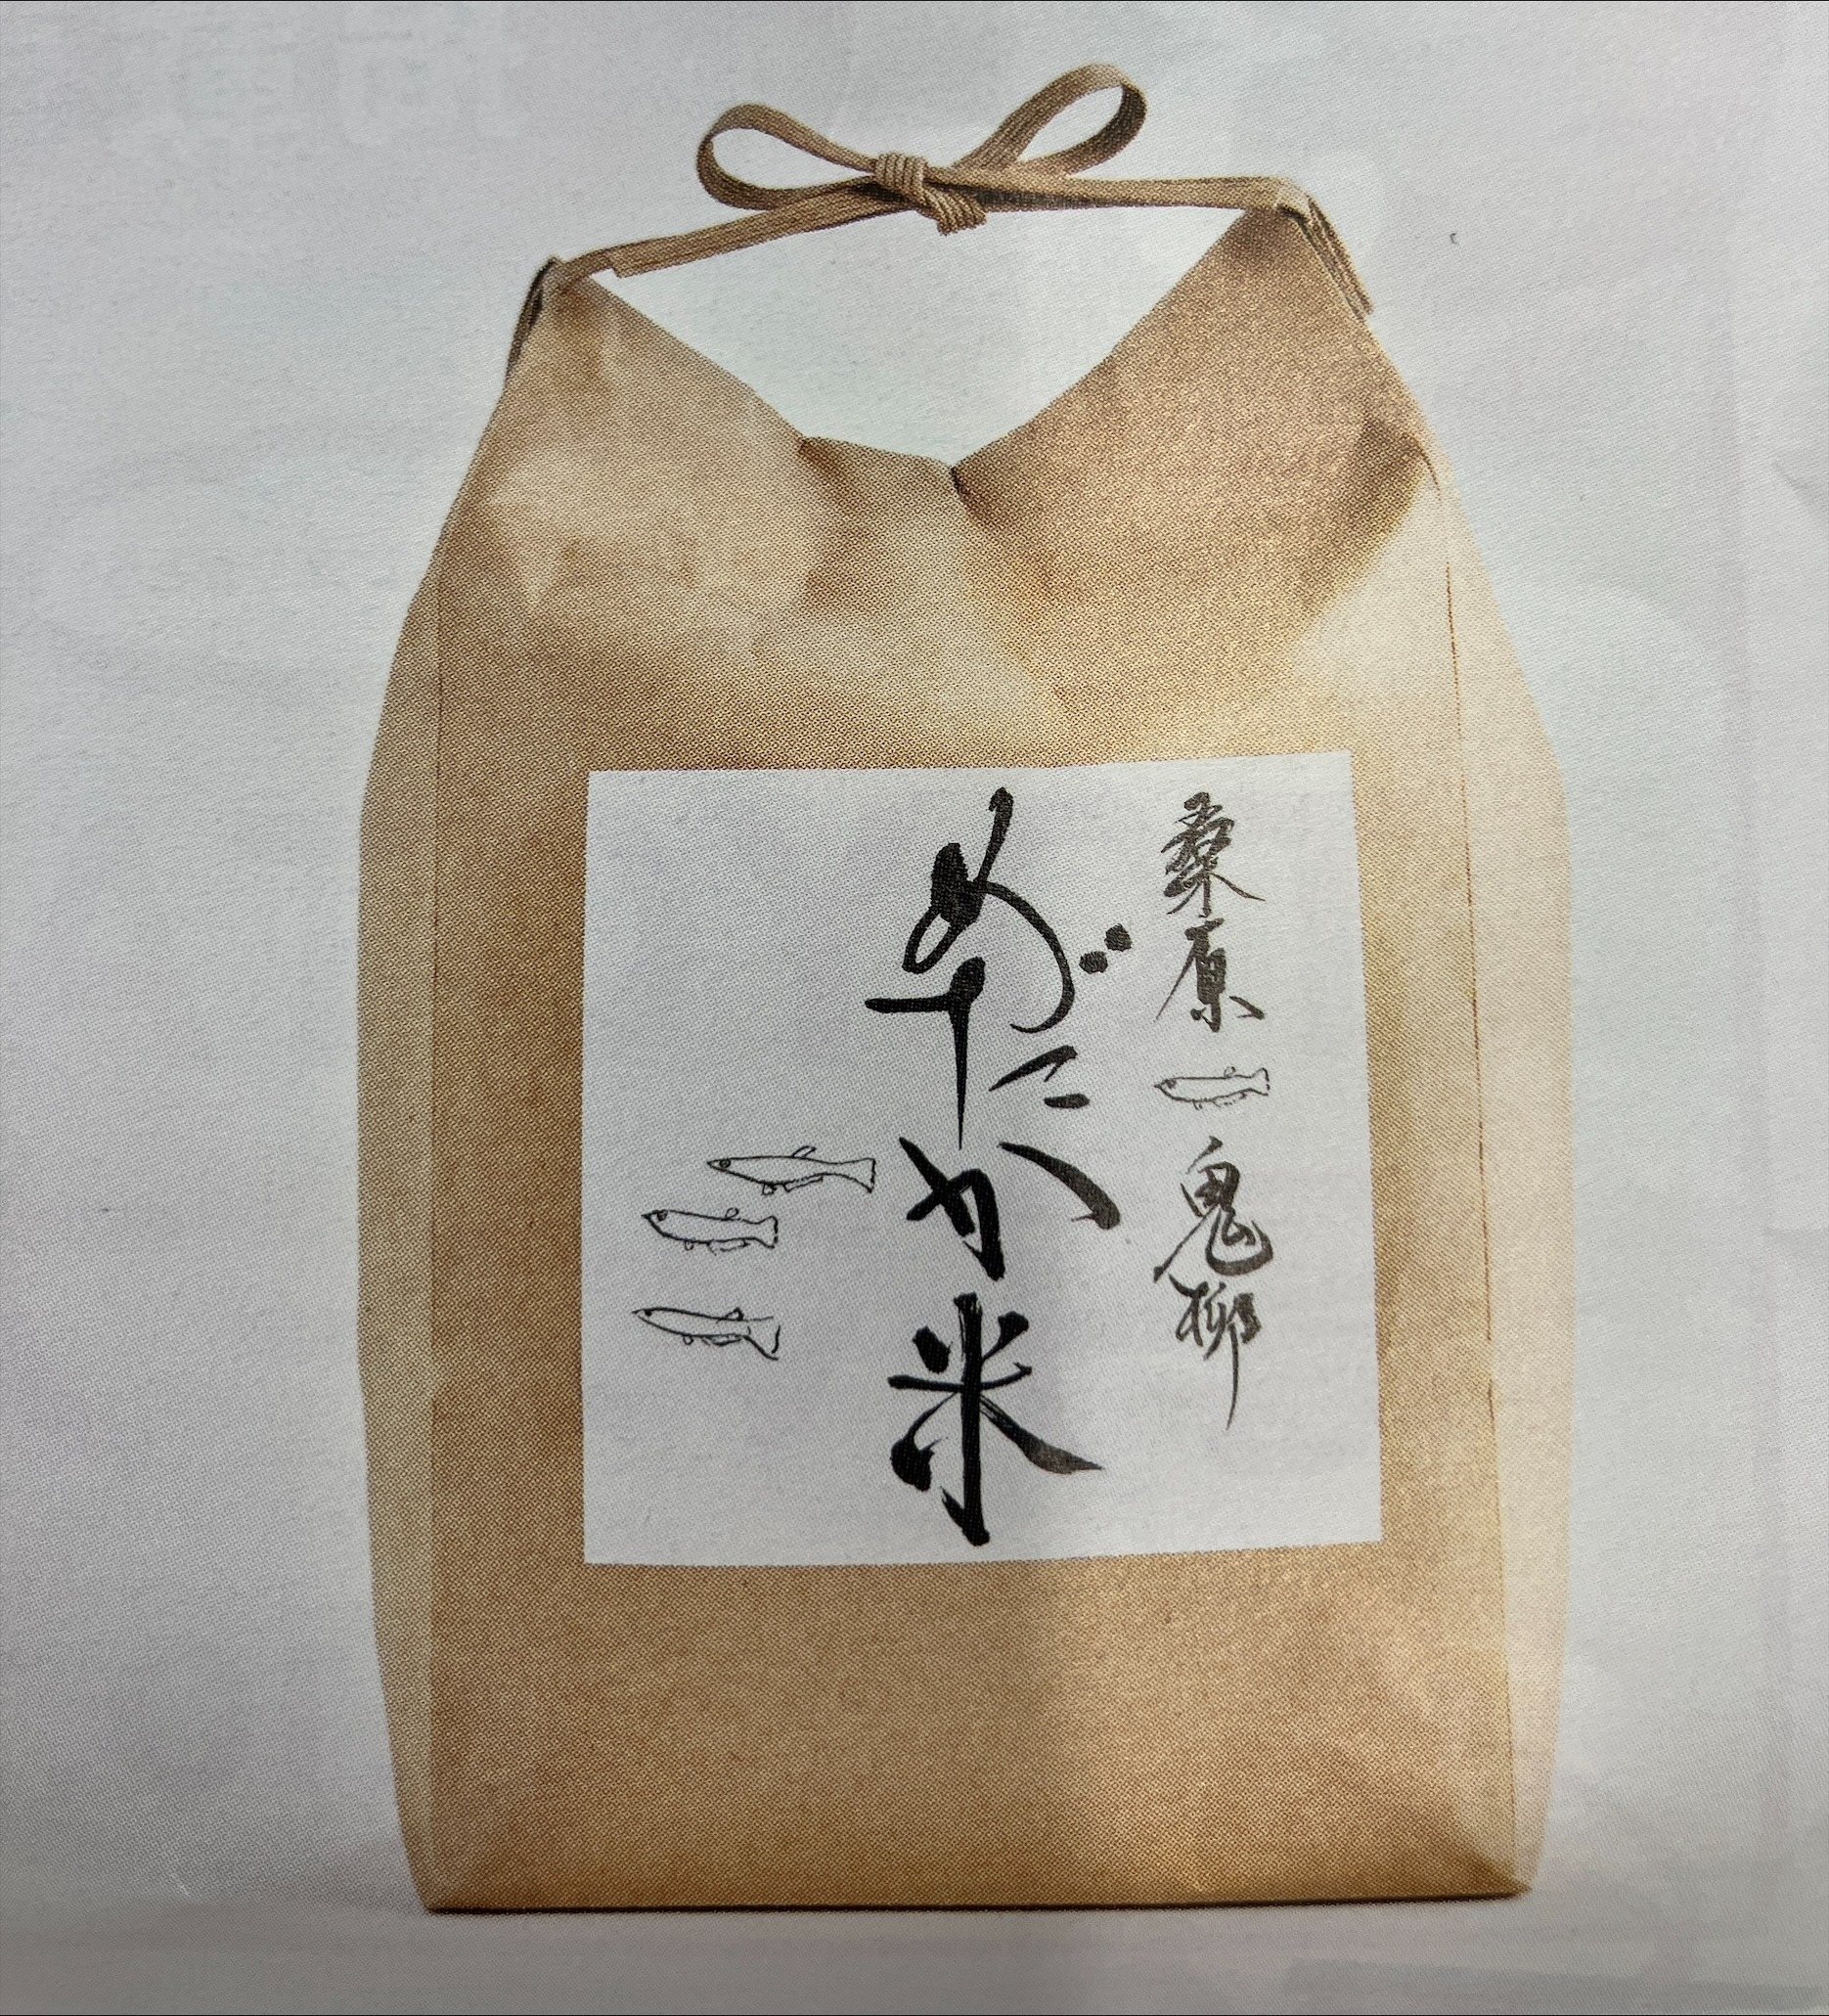 桑原 鬼柳
めだか米